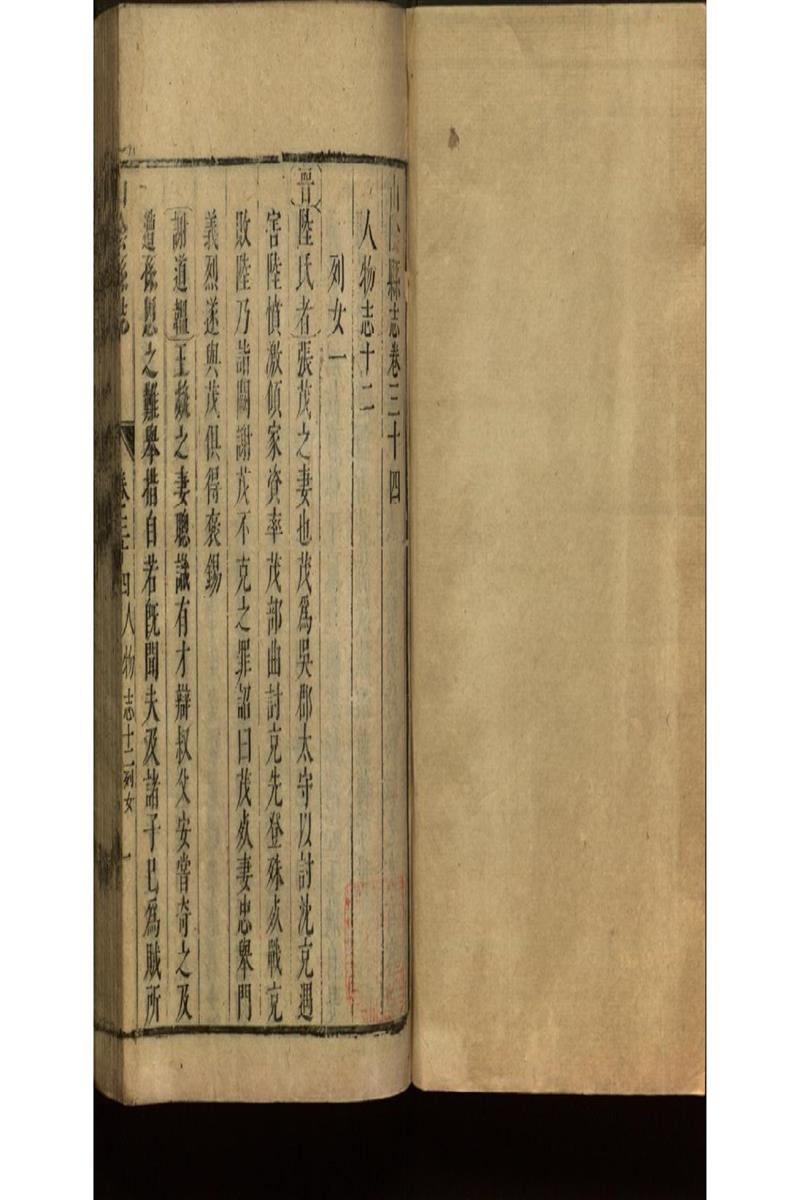 山陰縣志卷三十四
人物志十二
列女一
晉陸氏者張茂之妻也茂為吳郡太守以討沈充遇
害陸憤激傾家資率茂部曲討充先登殊死戰充
敗陸乃詣闕謝茂不克之罪詔曰茂夫妻忠舉門
義烈遂與茂俱得褒錫
謝道韞王凝之妻聰識有才辯叔父安嘗奇之及
遭孫恩之難舉措自若旣聞夫及諸子已為賊所
山陰縣志 卷三十四 人物志十二 列女 一